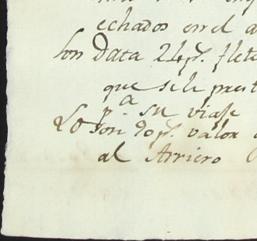 echados en el a
son Data 24 ps. flete
que se le prest
pa. su viaje
Lo son 90 ps. valor
al Arriero